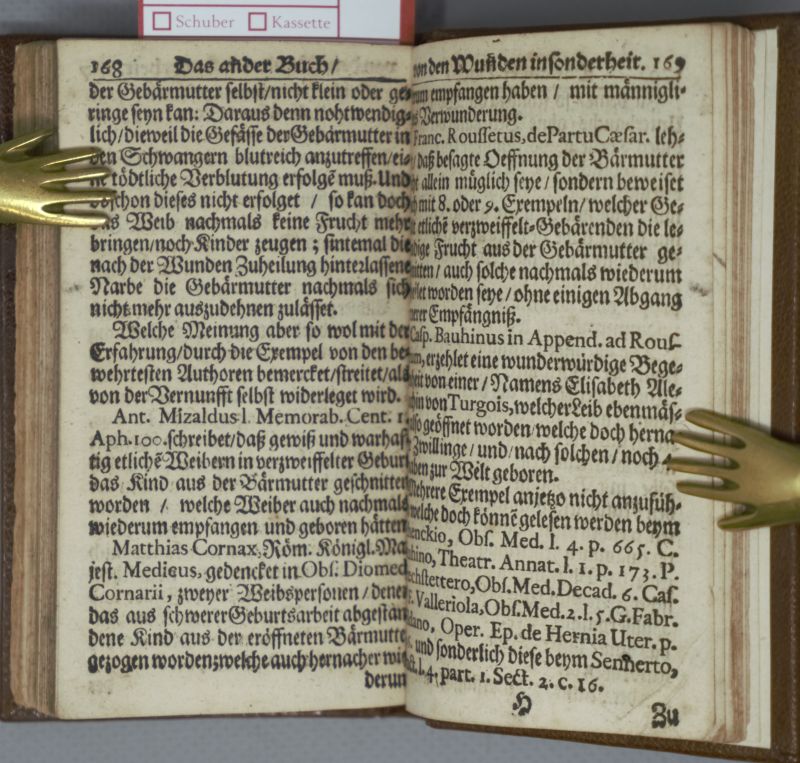 Schuber Kassette
168 Das ander Buch/
der Gebärmutter selbst/nicht klein oder ge-
ringe seyn kan: Daraus denn nohtwendig-
lich/dieweil die Gefässe der Gebärmutter in
den Schwangern blutreich anzutreffen/ei-
ne tödtliche Verblutung erfolgẽ muß. Und
obschon dieses nicht erfolget / so kan doch
das Weib nachmals keine Frucht mehr
bringen/noch Kinder zeugen; sintemal die
nach der Wunden Zuheilung hinterlassene
Narbe die Gebärmutter nachmals sich
nicht mehr auszudehnen zulässet.
Welche Meinung aber so wol mit der
Erfahrung/durch die Exempel von den be-
wehrtesten Authoren bemercket/streitet/als
von der Vernunfft selbst widerleget wird.
Ant. Mizaldus l. Memorab. Cent. 1.
Aph. 100. schreibet/daß gewiß und warhaf-
tig etlichẽ Weibern in verzweiffelter Geburt
das Kind aus der Bärmutter geschnitten
worden / welche Weiber auch nachmals
wiederum empfangen und geboren hätten
Matthias Cornax, Röm. Königl. Ma
jest. Medicus, gedencket in Obs. Diomed
Cornarii, zweyer Weibspersonen/denen
das aus schwerer Geburtsarbeit abgestan
dene Kind aus der eröffneten Bärmutter
gezogen worden; welche auch hernacher wie
derum
von den Wuñden insonderheit. 169
empfangen haben / mit männigli-
Verwunderung.
Franc. Roussetus, de Partu Cæsar. leh-
daß besagte Oeffnung der Bärmutter
allein müglich seye / sondern beweiset
mit 8. oder 9. Exempeln/welcher Ge-
etlichẽ verzweiffelt-Gebärenden die le-
Frucht aus der Gebärmutter ge-
/ auch solche nachmals wiederum
worden seye / ohne einigen Abgang
Empfängniß.
Casp. Bauhinus in Append. ad Rous-
erzehlet eine wunderwürdige Bege-
von einer / Namens Elisabeth Ale-
von Turgois, welcher Leib ebenmäs-
geöffnet worden/welche doch herna-
Zwillinge / und nach solchen / noch
zur Welt geboren.
Mehrere Exempel anjetzo nicht anzufüh-
welche doch könnẽ gelesen werden beym
Obs. Med. l. 4. p. 665. C.
Theatr. Annat. l. 1. p. 173. P.
Obs. Med. Decad. 6. Cas.
Valleriola, Obs. Med. 2. l. 5. G. Fabr.
Oper. Ep. de Hernia Uter. p.
und sonderlich diese beym Sennerto,
l. 4. part. 1. Sect. 2. c. 16.
H Zu